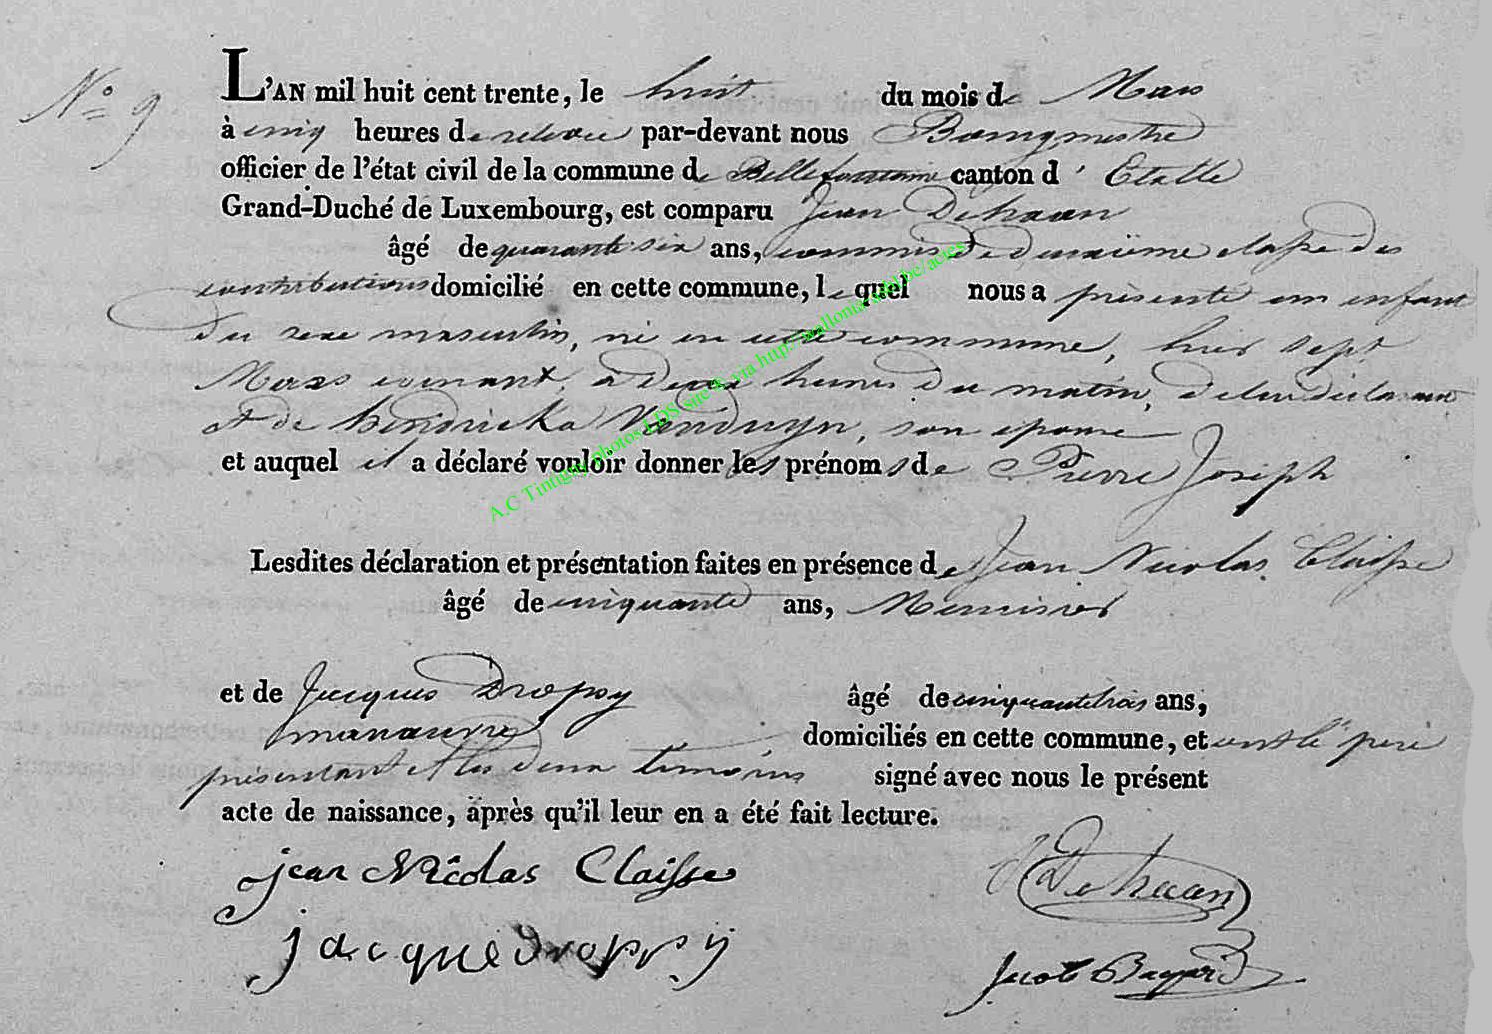 N° 9
L'AN mil huit cent trente, le huit du mois de Mars
à cinq heures de relevée par-devant nous Bourgmestre
officier de l'état civil de la commune de Bellefontaine canton d'Etalle
Grand-Duché de Luxembourg, est comparu Jean Dehaan
âgé de quarante six ans, commis de deuxième classe des
contributions domicilié en cette commune, lequel nous a présenté un enfant
du sexe masculin, né en cette commune, hier sept
Mars courant, à deux heures du matin, de lui déclarant
et de hendricka Vanduyn, son épouse
et auquel il a déclaré vouloir donner les prénoms de Pierre Joseph
Lesdites déclaration et présentation faites en présence de Jean Nicolas Claisse
âgé de cinquante ans, Menuisier
et de Jacques Dropsy âgé de cinquante trois ans,
manœuvre domiciliés en cette commune, et ont le père
présentant et les deux témoins signé avec nous le présent
acte de naissance, après qu'il leur en a été fait lecture.
jean Nicolas Claisse Dehaan
jacque droppy
A.C Tintigny photos LDS (site & via http://wallonia.asbl.be/actes